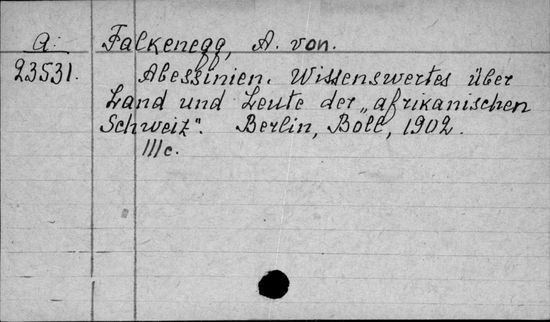 a. Falkenegg, A. von.
23531. Abessinien. Wissenswertes über
Land und Leute der „afrikanischen
Schweiz". Berlin, Boll, 1902.
IIIc.